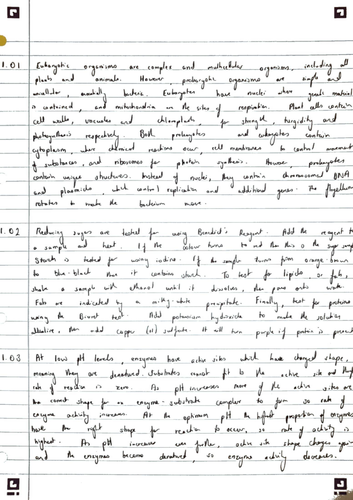 1.01 Eukaryotic organisms are complex and multicellular organisms, including all
plants and animals. However, prokaryotic organisms are simple and
unicellular, bacteria. Eukaryotes have nuclei where genetic material
is contained, and mitochondria as the sites of respiration. Plant cells contain
cell walls, vacuoles and chloroplasts, for strength, turgidity and
photosynthesis respectively. Both prokaryotes and eukaryotes contain
cytoplasm, where chemical reactions occur, cell membranes to control movement
of substances, and ribosomes for protein synthesis. However, prokaryotes
contain unique structures. Instead of nuclei, they contain chromosomal DNA
and plasmids, which control replication and additional genes. The flagellum
rotates to make the bacterium move.
1.02 Reducing sugars are tested for using Benedict's Reagent. Add the reagent to
a sample and heat. If the colour turns to red then this is the sugar
Starch is tested for using iodine. If the sample turns from orange brown
to blue-black then it contains starch. To test for lipids, or fats,
shake a sample with ethanol until it dissolves, then pour into water.
Fats are indicated by a milky-white precipitate. Finally, test for proteins
using the Biuret test. Add potassium hydroxide to make the solution
alkaline, then add copper (II) sulfate. It will turn purple if protein is present.
1.03 At low pH levels, enzymes have active sites which have changed shape,
meaning they are denatured. Substrates cannot fit to the active site and
rate of reaction is zero. As pH increases more of the active sites are
the correct shape for an enzyme-substrate complex to form so rate of
enzyme activity increases. At the optimum pH the highest proportion of enzymes
have the right shape for reaction to occur, so rate of activity is
highest. As pH increases even further, active site shape changes again
and the enzymes become denatured, so enzyme activity decreases.